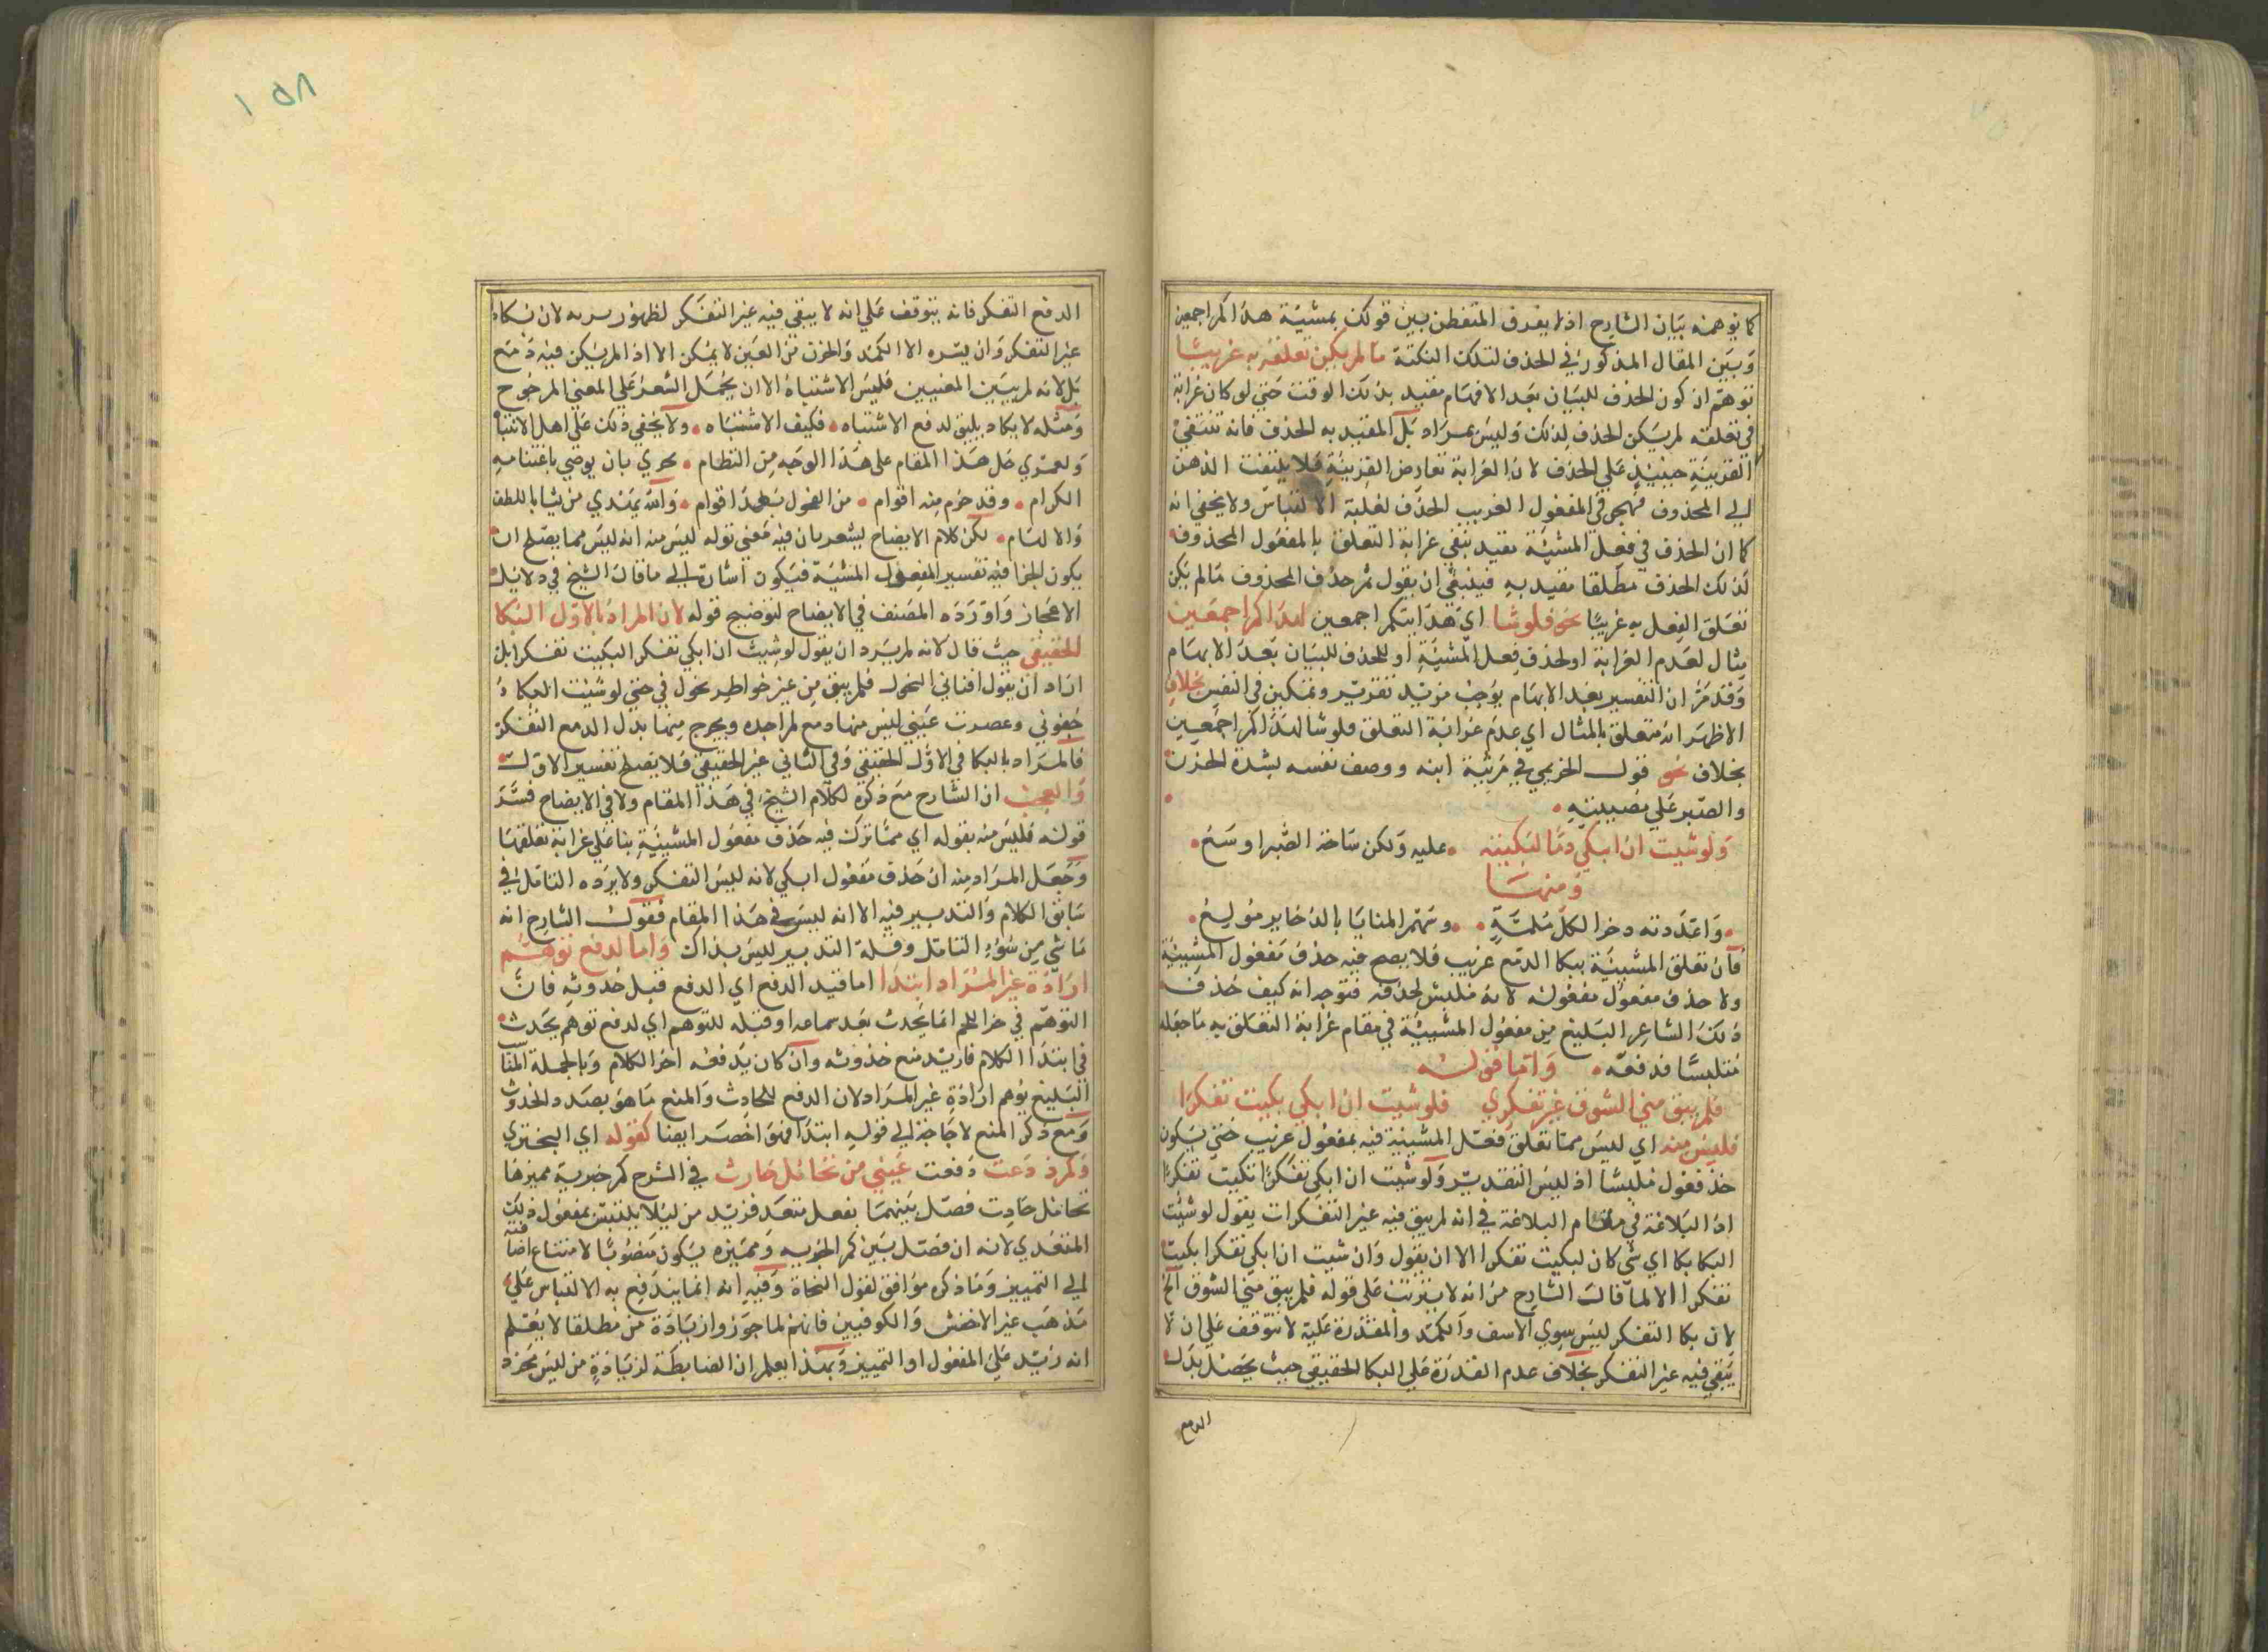 كما توهمه بيان الشارح اذ لا يفرق المتفطن بين قولك بمشيئة هداكم اجمعين
وبين المقال المذكور في الحذف لتلك النكتة ما لم يكن تعلقه به غريبا
توهم ان كون الحذف للبيان بعد الابهام مقيد بذلك الوقت حتى لو كان غرابة
في تعلقه لم يكن الحذف لذلك وليس بمراد بل المقيد به الحذف فانه تنتفي
القرينة حينئذ على الحذف لان الغرابة تعارض القرينة فلا يلتفت الذهن
الى المحذوف فهجر في المفعول الغريب الحذف لغلبة الالتباس ولا يخفى انه
كما ان الحذف في فعل المشيئة مقيد بنفي غرابة التعلق بالمفعول المحذوف
كذلك الحذف مطلقا مقيد به فينبغي ان يقول ثم حذف المحذوف ما لم يكن
تعلق الفعل به غريبا نحو فلو شا اي هدايتكم اجمعين لهداكم اجمعين
مثال لعدم الغرابة او لحذف فعل المشيئة او للحذف للبيان بعد الابهام
وقد مر ان التفسير بعد الابهام يوجب مزيد تقرير وتمكين في النفس بخلاف
الاظهر انه متعلق بالمثال اي عدم غرابة التعلق فلو شا لهداكم اجمعين
بخلاف نحو قول الخريمي في مرثية ابنه ووصف نفسه بشدة الحزن
والصبر على مصيبته
ولو شيت ان ابكي دما لبكيته عليه ولكن ساحة الصبر اوسع
ومنها
واعددته ذخرا لكل ملمة وسهم المنايا بالذخاير مولع
فان تعلق المشيئة ببكا الدمع غريب فلا يصح فيه حذف مفعول المشيئة
ولا حذف مفعول مفعوله لانه ملبس لحذفه فتوجه انه كيف حذف
ذلك الشاعر البليغ من مفعول المشيئة في مقام غرابة التعلق به ما جعله
متلبسا فدفعه واما قوله
فلم يبق مني الشوق غير تفكري فلو شيت ان ابكي بكيت تفكرا
فليس منه اي ليس مما تعلق فعل المشيئة فيه بمفعول غريب حتى يكون
حذفه ملبسا اذ ليس التقدير ولو شيت ان ابكي تفكرا لبكيت تفكرا
اذ البلاغة في مقام البلاغة في انه لم يبق فيه غير التفكرات يقول لو شئت
البكا بكا اي شي كان لبكيت تفكرا الا ان يقول وان شيت ان ابكي تفكرا بكيت
تفكرا الا لما قال الشارح من انه لا يترتب على قوله فلم يبق مني الشوق الخ
لان بكا التفكر ليس سوى الاسف والكمد والقدرة عليه لا تتوقف على ان لا
يبقى فيه غير التفكر بخلاف عدم القدرة على البكا الحقيقي حيث يحصل بدل
الدمع
١٥٨
الدمع التفكر فانه يتوقف على انه لا يبقى فيه غير التفكر لظهور
غير التفكر وان يسره الا الكمد والحزن من العين لا يمكن الا اذا لم يكن فيه دمع
بل لانه لم يبين المعنيين فليس الاشتباه الا ان يحمل الشعر على المعنى المرجوح
ومثله لا يكاد يليق لدفع الاشتباه فكيف الاشتباه ولا يخفى ذلك على اهل الانتباه
ولعمري حل هذا المقام على هذا الوجه من النظام حري بان يوصي باغتنامه
الكرام وقد حرم منه اقوام من الفحول بعد اقوام والله يهتدي من يشا باللطف
والالهام لكن كلام الايضاح يشعر بان فيه معنى قوله ليس منه انه ليس مما يصلح ان
يكون الجزا فيه تفسير المفعول المشيئة فيكون اشارة الى ما قال الشيخ في دلايل
الاعجاز واورده المصنف في الايضاح لتوضيح قوله لان المراد بالاول البكا
الحقيقي حيث قال لانه لم يرد ان يقول لو شيت ان ابكي تفكرا لبكيت تفكرا بل
اراد ان يقول افناني النحول فلم يبق مني غير خواطر تجول في حتى لو شئت البكا
جفوني وعصرت عيني ليس منها دمع لم اجده ويخرج منها بدل الدمع التفكر
فالمراد بالبكا في الاول الحقيقي وفي الثاني غير الحقيقي فلا يصلح تفسيرا للاول
والعجب ان الشارح مع ذكره لكلام الشيخ في هذا المقام ولا في الايضاح فسر
قوله فليس منه بقوله اي مما ترك فيه حذف مفعول المشيئة بنا على غرابة تعلقها
وجعل المراد منه ان حذف مفعول ابكي لانه ليس التفكر ولا يرده التامل في
سابق الكلام والتدبير فيه الا انه ليس في هذا المقام فقول الشارح انه
ناشي من سوء التامل وقلة التدبير ليس بذاك واما لدفع توهم
ارادة غير المراد ابتدا اما قيد الدفع اي الدفع قبل حدوثه فان
التوهم في حز اللحم انما يحدث بعد سماعه او قبله للتوهم اي لدفع توهم يحدث
في ابتدا الكلام فاريد منع حدوثه وان كان يدفعه اخر الكلام وبالجملة المناسب
البليغ توهم ارادة غير المراد لان الدفع للحادث والمنع ما هو بصدد الحدوث
ومع ذكر المنع لا حاجة الى قوله ابتدا فهو اخصر ايضا كقوله اي البحتري
وكم ذدت دفعت عيني من تحامل حادث في الشرح كم خبرية مميزها
تحامل حادث فصل بينهما بفعل متعد فزيد من ليلا يلتبس بمفعول ذلك
المتعدي لانه ان فصل بين كم الخبرية ومميزه يكون منصوبا لامتناع اضافته
الى التمييز وما ذكره موافق لقول النحاة وفيه انه انما يندفع به الالتباس على
مذهب غير الاخفش والكوفيين فانهم لما جوزوا زيادة من مطلقا لا يعلم
انه زيد على المفعول او التمييز وبهذا يعلم ان الضابطة لزيادة من ليس مجرد